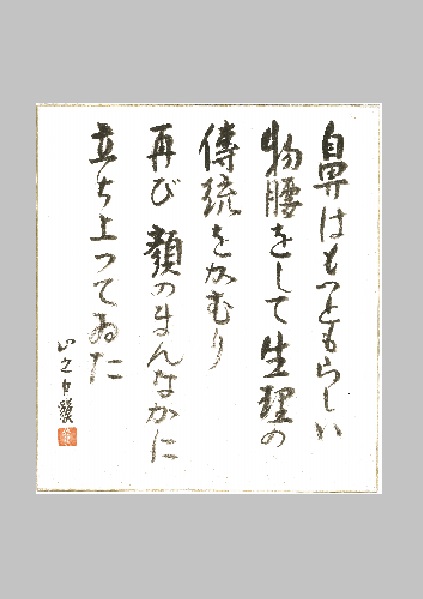 鼻はもつともらしい
物腰をして生理の
傳統をかむり
再び顏のまんなかに
立ち上つてゐた
山之口貘